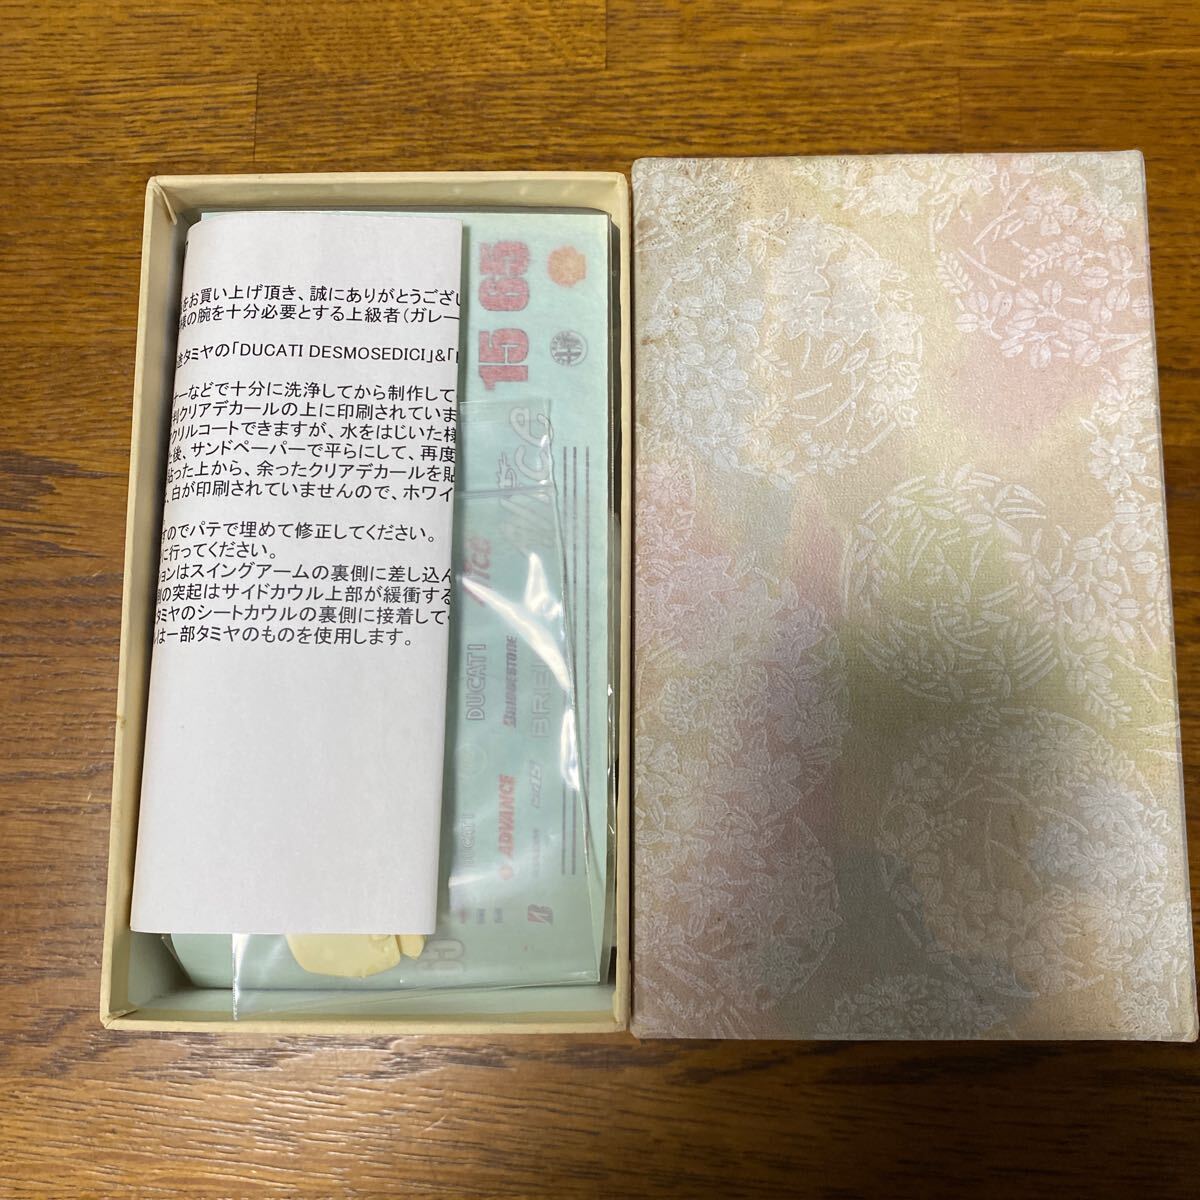 をお買い上げ頂き、誠にありがとうござい
様の腕を十分必要とする上級者（ガレー
タミヤの「DUCATI DESMOSEDICI」&「
ナーなどで十分に洗浄してから制作して
判クリアデカールの上に印刷されていま
クリルコートできますが、水をはじいた様
た後、サンドペーパーで平らにして、再度
貼った上から、余ったクリアデカールを貼
、白が印刷されていませんので、ホワイ
すのでパテで埋めて修正してください。
に行ってください。
ョンはスイングアームの裏側に差し込ん
側の突起はサイドカウル上部が緩衝する
タミヤのシートカウルの裏側に接着して
は一部タミヤのものを使用します。
15 65
Alice
Alice
DUCATI
BRIDGESTONE
DUCATI
ADVANCE
65